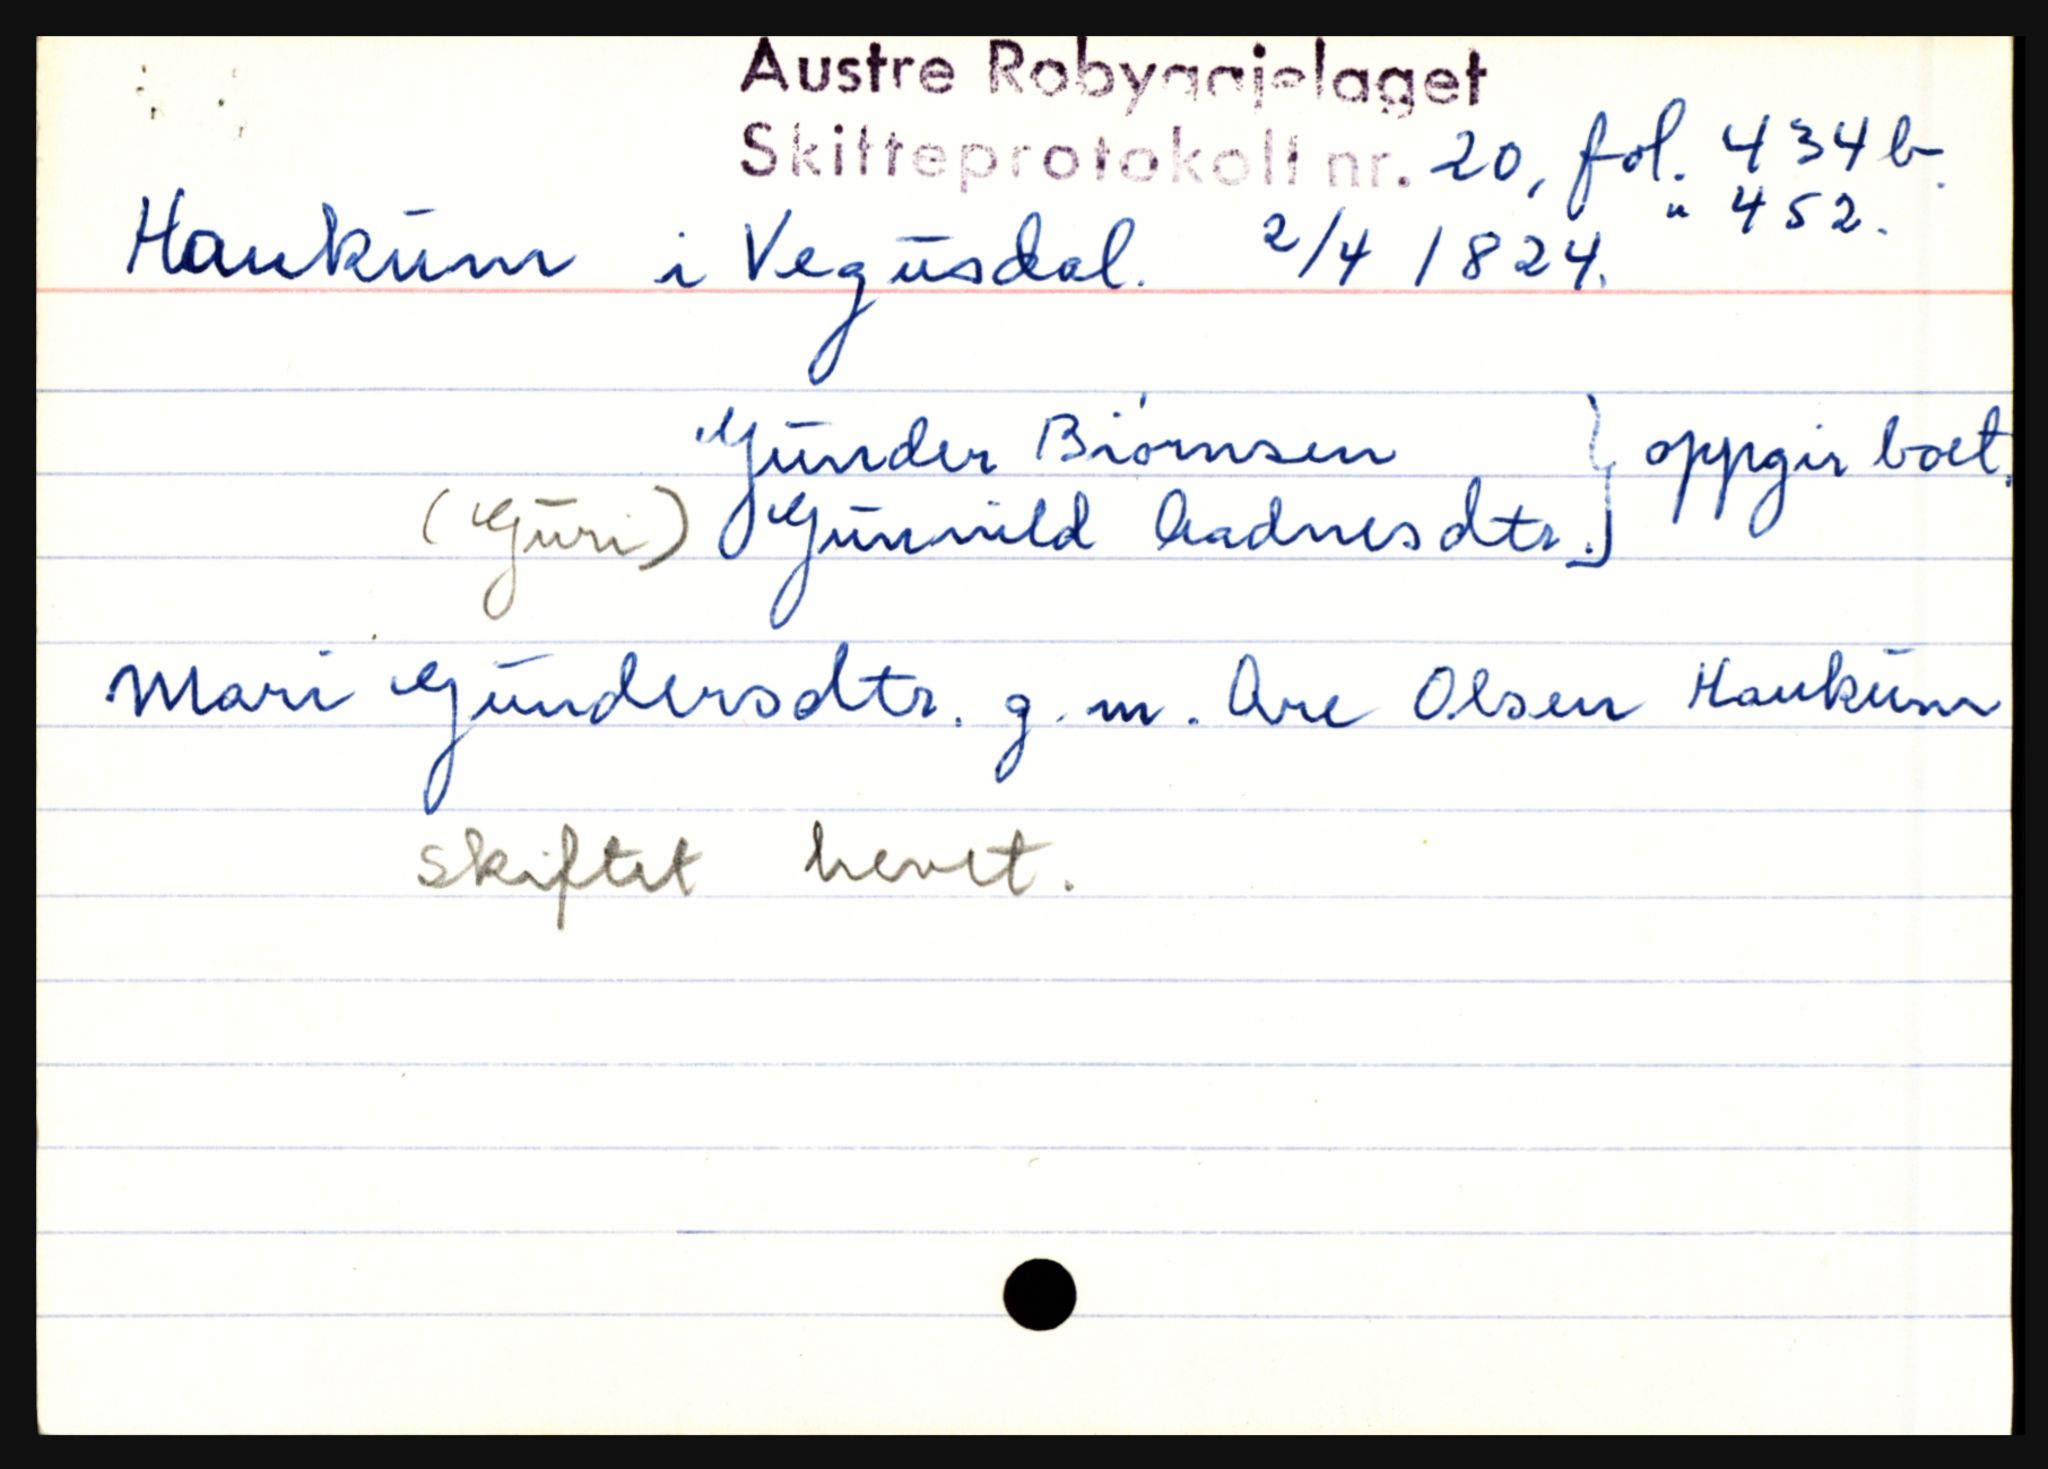 Austre Robyggjelaget
Skifteprotokoll nr. 20, fol. 434b.
" 452.
Haukum i Vegusdal. 2/4 1824.
Gunder Biørnsen } oppgir boet.
(Guri) Gunnild Aadnesdtr.
Mari Gundersdtr. g. m. Are Olsen Haukum
skiftet hevet.